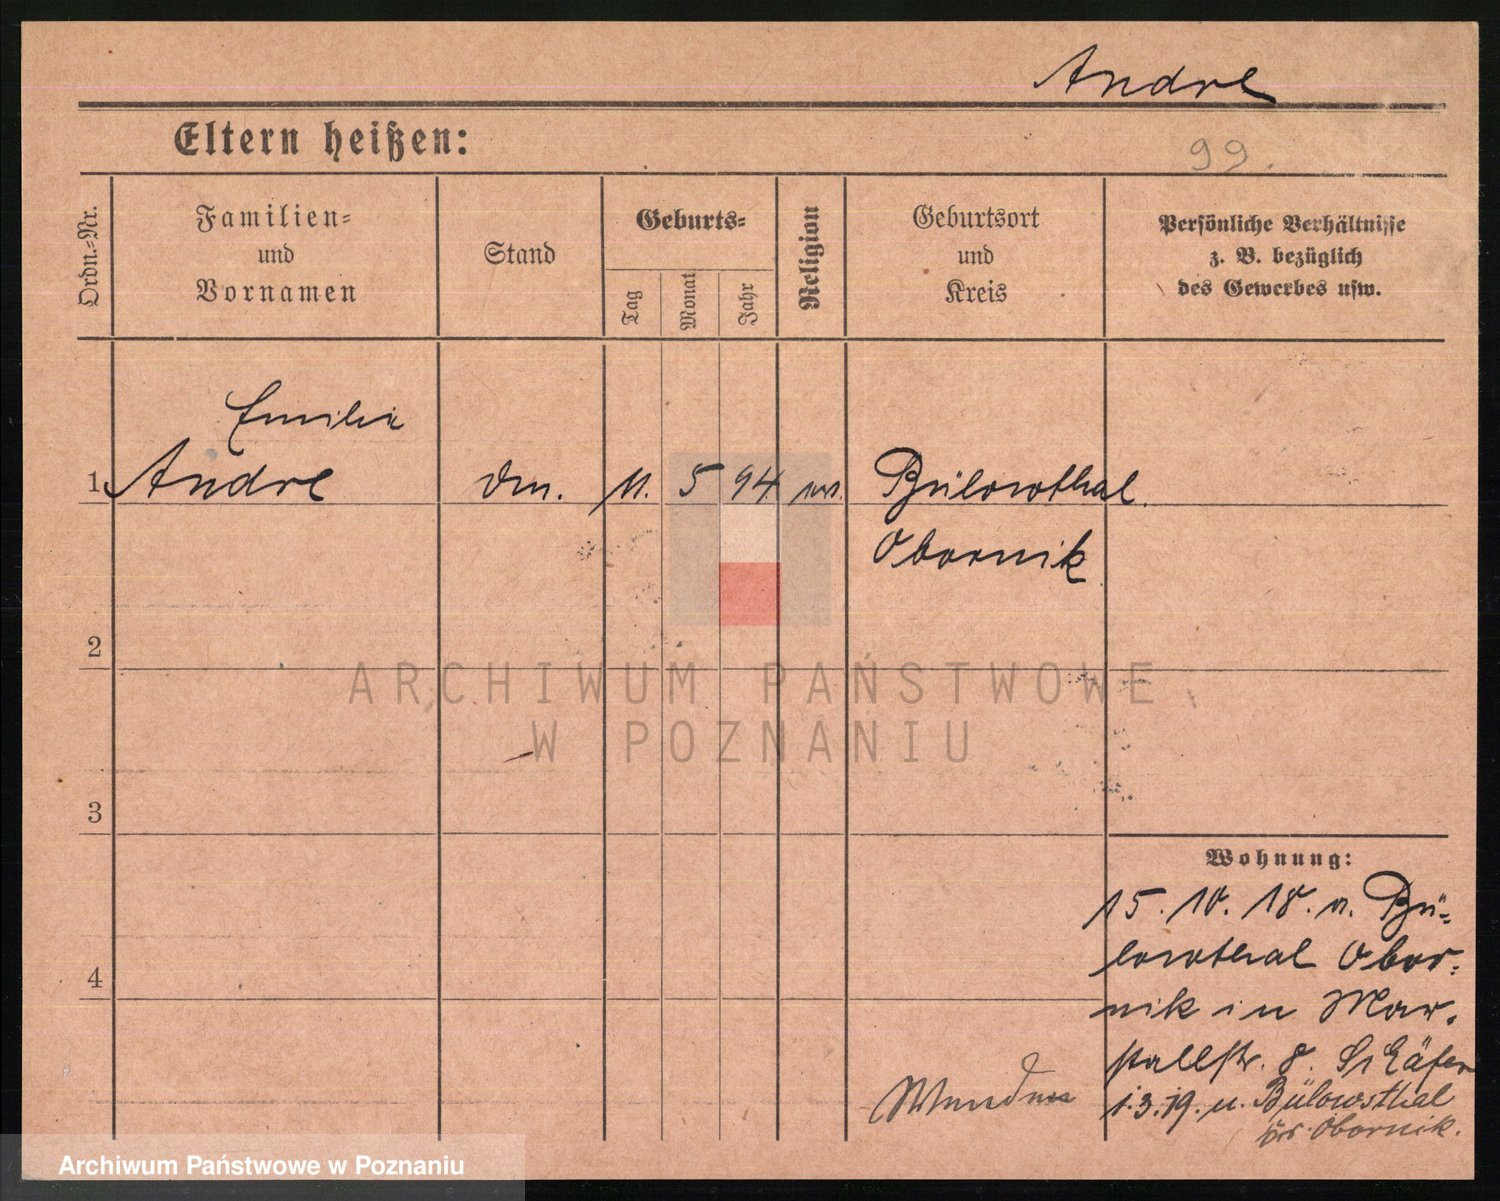 Andre
Eltern heißen:
99.
Ordn.-Nr.
Familien-
und
Vornamen
Stand
Geburts-
Tag
Monat
Jahr
Religion
Geburtsort
und
Kreis
Persönliche Verhältnisse
z. B. bezüglich
des Gewerbes usw.
Emilie
1 Andre
11. 5 94
Bülowsthal
Obornik
2
ARCHIWUM PAŃSTWOWE
W POZNANIU
3
Wohnung:
15. 10. 18. v. Bü-
lowsthal Obor-
nik in Mar-
stallstr. 8. Schäfer
4
1.3.19. n. Bülowsthal
Obornik.
Archiwum Państwowe w Poznaniu